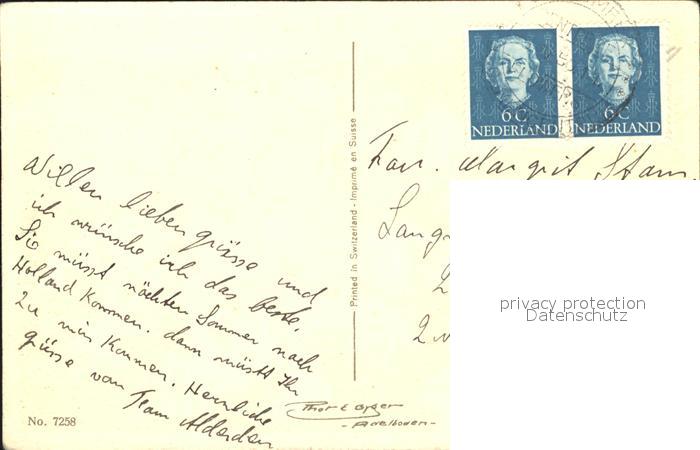 Willen lieben grüsse und
ich wünsche ich das beste.
Sie müsst nächten Sommer nach
Holland Kommen. dann müsst Ihr
zu min Kommen. Hernliche
grüsse van
No. 7258
Printed in Switzerland - Imprimé en Suisse
6C
NEDERLAND
6C
NEDERLAND
Margrit Stam
Lang
- Adelboden -
privacy protection
Datenschutz